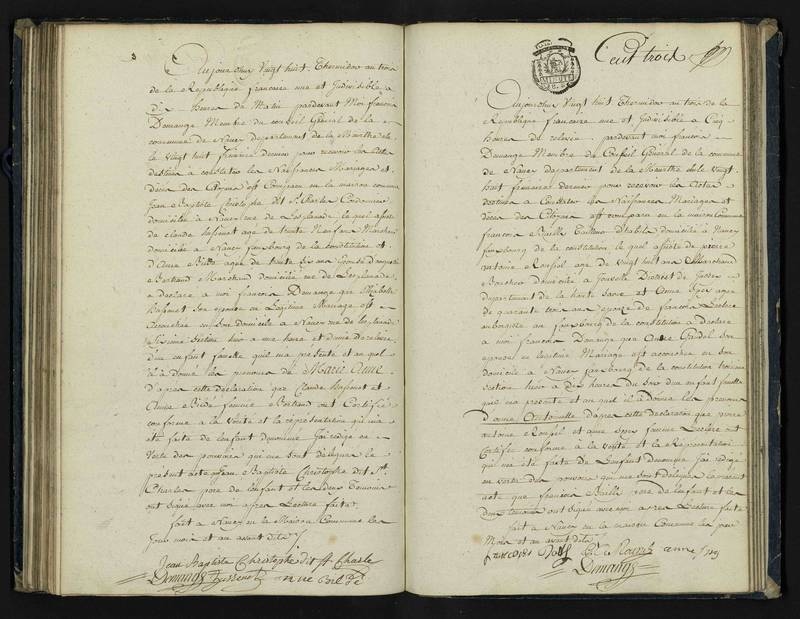 Aujourdhuy Vingt huit Thermidor an trois
de la Republique francaise une et Indivisible a
dix heures du Matin pardevant Moi françois
Demange Membre du conseil Général de la
commune de Nancy Departement de la Meurthe
le vingt huit frimaire dernier pour recevoir les actes
destinés a constater les Naissances Mariages et
décès des Citoyens est Comparu en la maison commune
Jean Baptiste Christophe dit St Charles Cordonnier
domicilié à Nancy rue de Lesplanade, le quel assisté
de claude agé de trente Neuf ans Marchand
domicilié a Nancy fauxbourg de la constitution et
d'Anne agée de trente six ans Epouse
Bertrand Marchand domiciliée rue de Lesplanade
a déclaré a moi françois Demange que
son epouse en Legitime Mariage est
accouchée en son domicile a Nancy rue de lesplanade
Section hier a une heure
d'un enfant femelle qu'il m'a présenté et au quel
il a donné les prénoms de Marie Anne
d'après cette déclaration que Claude et
Anne femme Bertrand ont Certifié
conforme a la Vérité et la représentation qui m'a
été faite de lenfant denommé J'ai rédigé en
Vertu des pouvoirs qui me sont délégués le
présent acte que Jean Baptiste Christophe dit St
Charles pere de lenfant et les deux Temoins
ont signé avec moi apres Lecture faite
fait a Nancy en la Maison Commune les
Jour mois et an avant dits
Jean Baptiste Christophe dit St Charle
Demange
Cent trois
Aujourdhuy Vingt huit Thermidor an trois de la
Republique francaise une et Indivisible a Cinq
heures de relevée pardevant moi françois
Demange Membre du Conseil Général de la commune
de Nancy departement de la Meurthe élu le Vingt
huit frimaire dernier pour recevoir les Actes
destinés a Constater les Naissances Mariages et
décès des Citoyens est comparu en la maison Commune
françois Tailleur d'habits domicilié à Nancy
fauxbourg de la constitution le quel assisté de pierre
antoine agé de vingt huit ans Marchand
domicilié a District de
departement de la haute Saone et Anne agée
de quarante trois ans epouse de françois Leclerc
au fauxbourg de la constitution a déclaré
a moi françois Demange que Anne son
epouse en Legitime Mariage est accouchée en son
domicile a Nancy fauxbourg de la constitution troisieme
section hier a dix heures du Soir d'un enfant femelle
qu'il m'a présenté et au quel il a donné les prénoms
d'anne Antoinette d'après cette déclaration que pierre
antoine et anne femme Leclerc ont
Certifié conforme à la vérité et la Représentation
qui m'a été faite de Lenfant denommé J'ai rédigé
en vertu des pouvoirs qui me sont délégués le présent
acte que françois pere de lenfant et les
deux temoins ont signé avec moi apres Lecture faite
fait a Nancy en la maison Commune les jour
Mois et an avant dits
françois anne
Demange